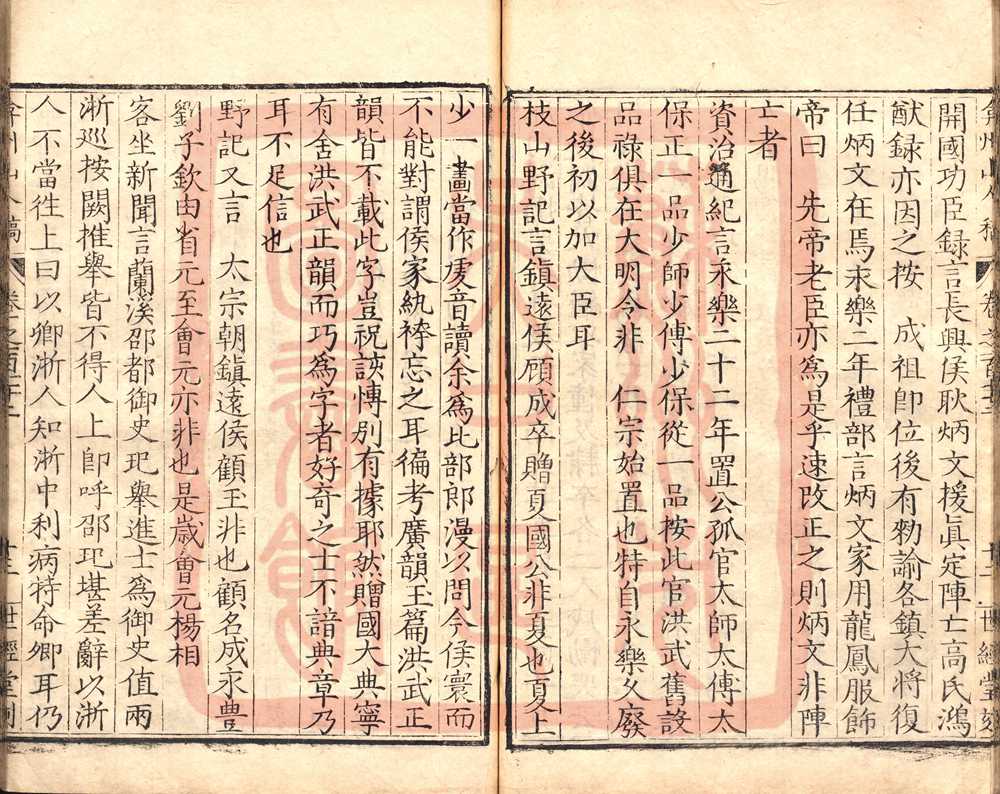 開國功臣録言長興侯耿炳文援眞定陣亡高氏鴻
猷録亦因之按　成祖卽位後有勑諭各鎮大將復
任炳文在焉永樂二年禮部言炳文家用龍鳳服飾
帝曰　先帝老臣亦爲是乎速改正之則炳文非陣
亡者
資治通紀言永樂二十二年置公孤官太師太傅太
保正一品少師少傅少保從一品按此官洪武舊設
品祿俱在大明令非　仁宗始置也特自永樂久廢
之後初以加大臣耳
枝山野記言鎮遠侯顧成卒贈夏國公非夏也夏上
少一畫當作㕠音讀余爲比部郎漫以問今侯寰而
不能對謂侯家紈袴忘之耳徧考廣韻玉篇洪武正
韻皆不載此字豈祝誤慱别有據耶然贈國大典寧
有舍洪武正韻而巧爲字者好奇之士不諳典章乃
耳不足信也
野記又言　太宗朝鎮遠侯顧玉非也顧名成永豐
劉子欽由省元至會元亦非也是歲會元楊相
客坐新聞言蘭溪邵都御史玘舉進士爲御史值兩
淅巡按闕推舉皆不得人上卽呼邵玘堪差辭以淅
人不當徃上曰以卿淅人知淅中利病特命卿耳仍
弇州山人稿
卷之百
世經堂刻